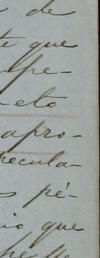 de
te que
mpe-
eto
apro-
pecula-
s pé-
io que